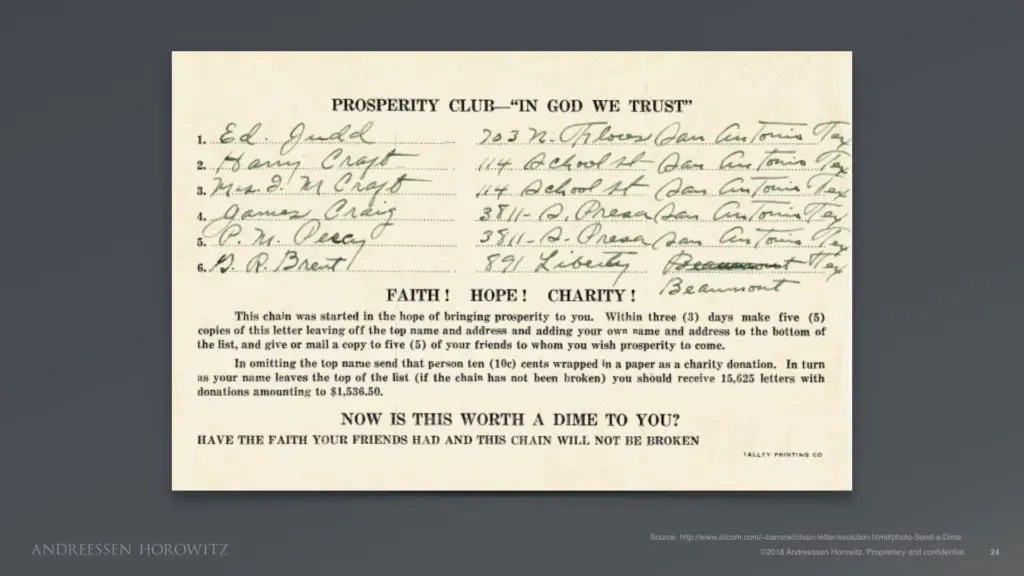 PROSPERITY CLUB—"IN GOD WE TRUST"
1. Ed. Judd 703 N. Flores San Antonio Tex
2. Harry Craft 114 School st San Antonio Tex
3. Mrs. F. M Craft 114 School st San Antonio Tex
4. James Craig 3811- S. Presa San Antonio Tex
5. P. M. Percy 3811- S. Presa San Antonio Tex
6. G. R. Brent 891 Liberty Beaumont Tex
Beaumont
FAITH! HOPE! CHARITY!
This chain was started in the hope of bringing prosperity to you. Within three (3) days make five (5)
copies of this letter leaving off the top name and address and adding your own name and address to the bottom of
the list, and give or mail a copy to five (5) of your friends to whom you wish prosperity to come.
In omitting the top name send that person ten (10c) cents wrapped in a paper as a charity donation. In turn
as your name leaves the top of the list (if the chain has not been broken) you should receive 15,625 letters with
donations amounting to $1,536.50.
NOW IS THIS WORTH A DIME TO YOU?
HAVE THE FAITH YOUR FRIENDS HAD AND THIS CHAIN WILL NOT BE BROKEN
TALLEY PRINTING CO
Source: http://www.silcom.com/~barnowl/chain-letter/evolution.html#photo-Send-a-Dime.
ANDREESSEN HOROWITZ
©2018 Andreessen Horowitz. Proprietary and confidential. 24